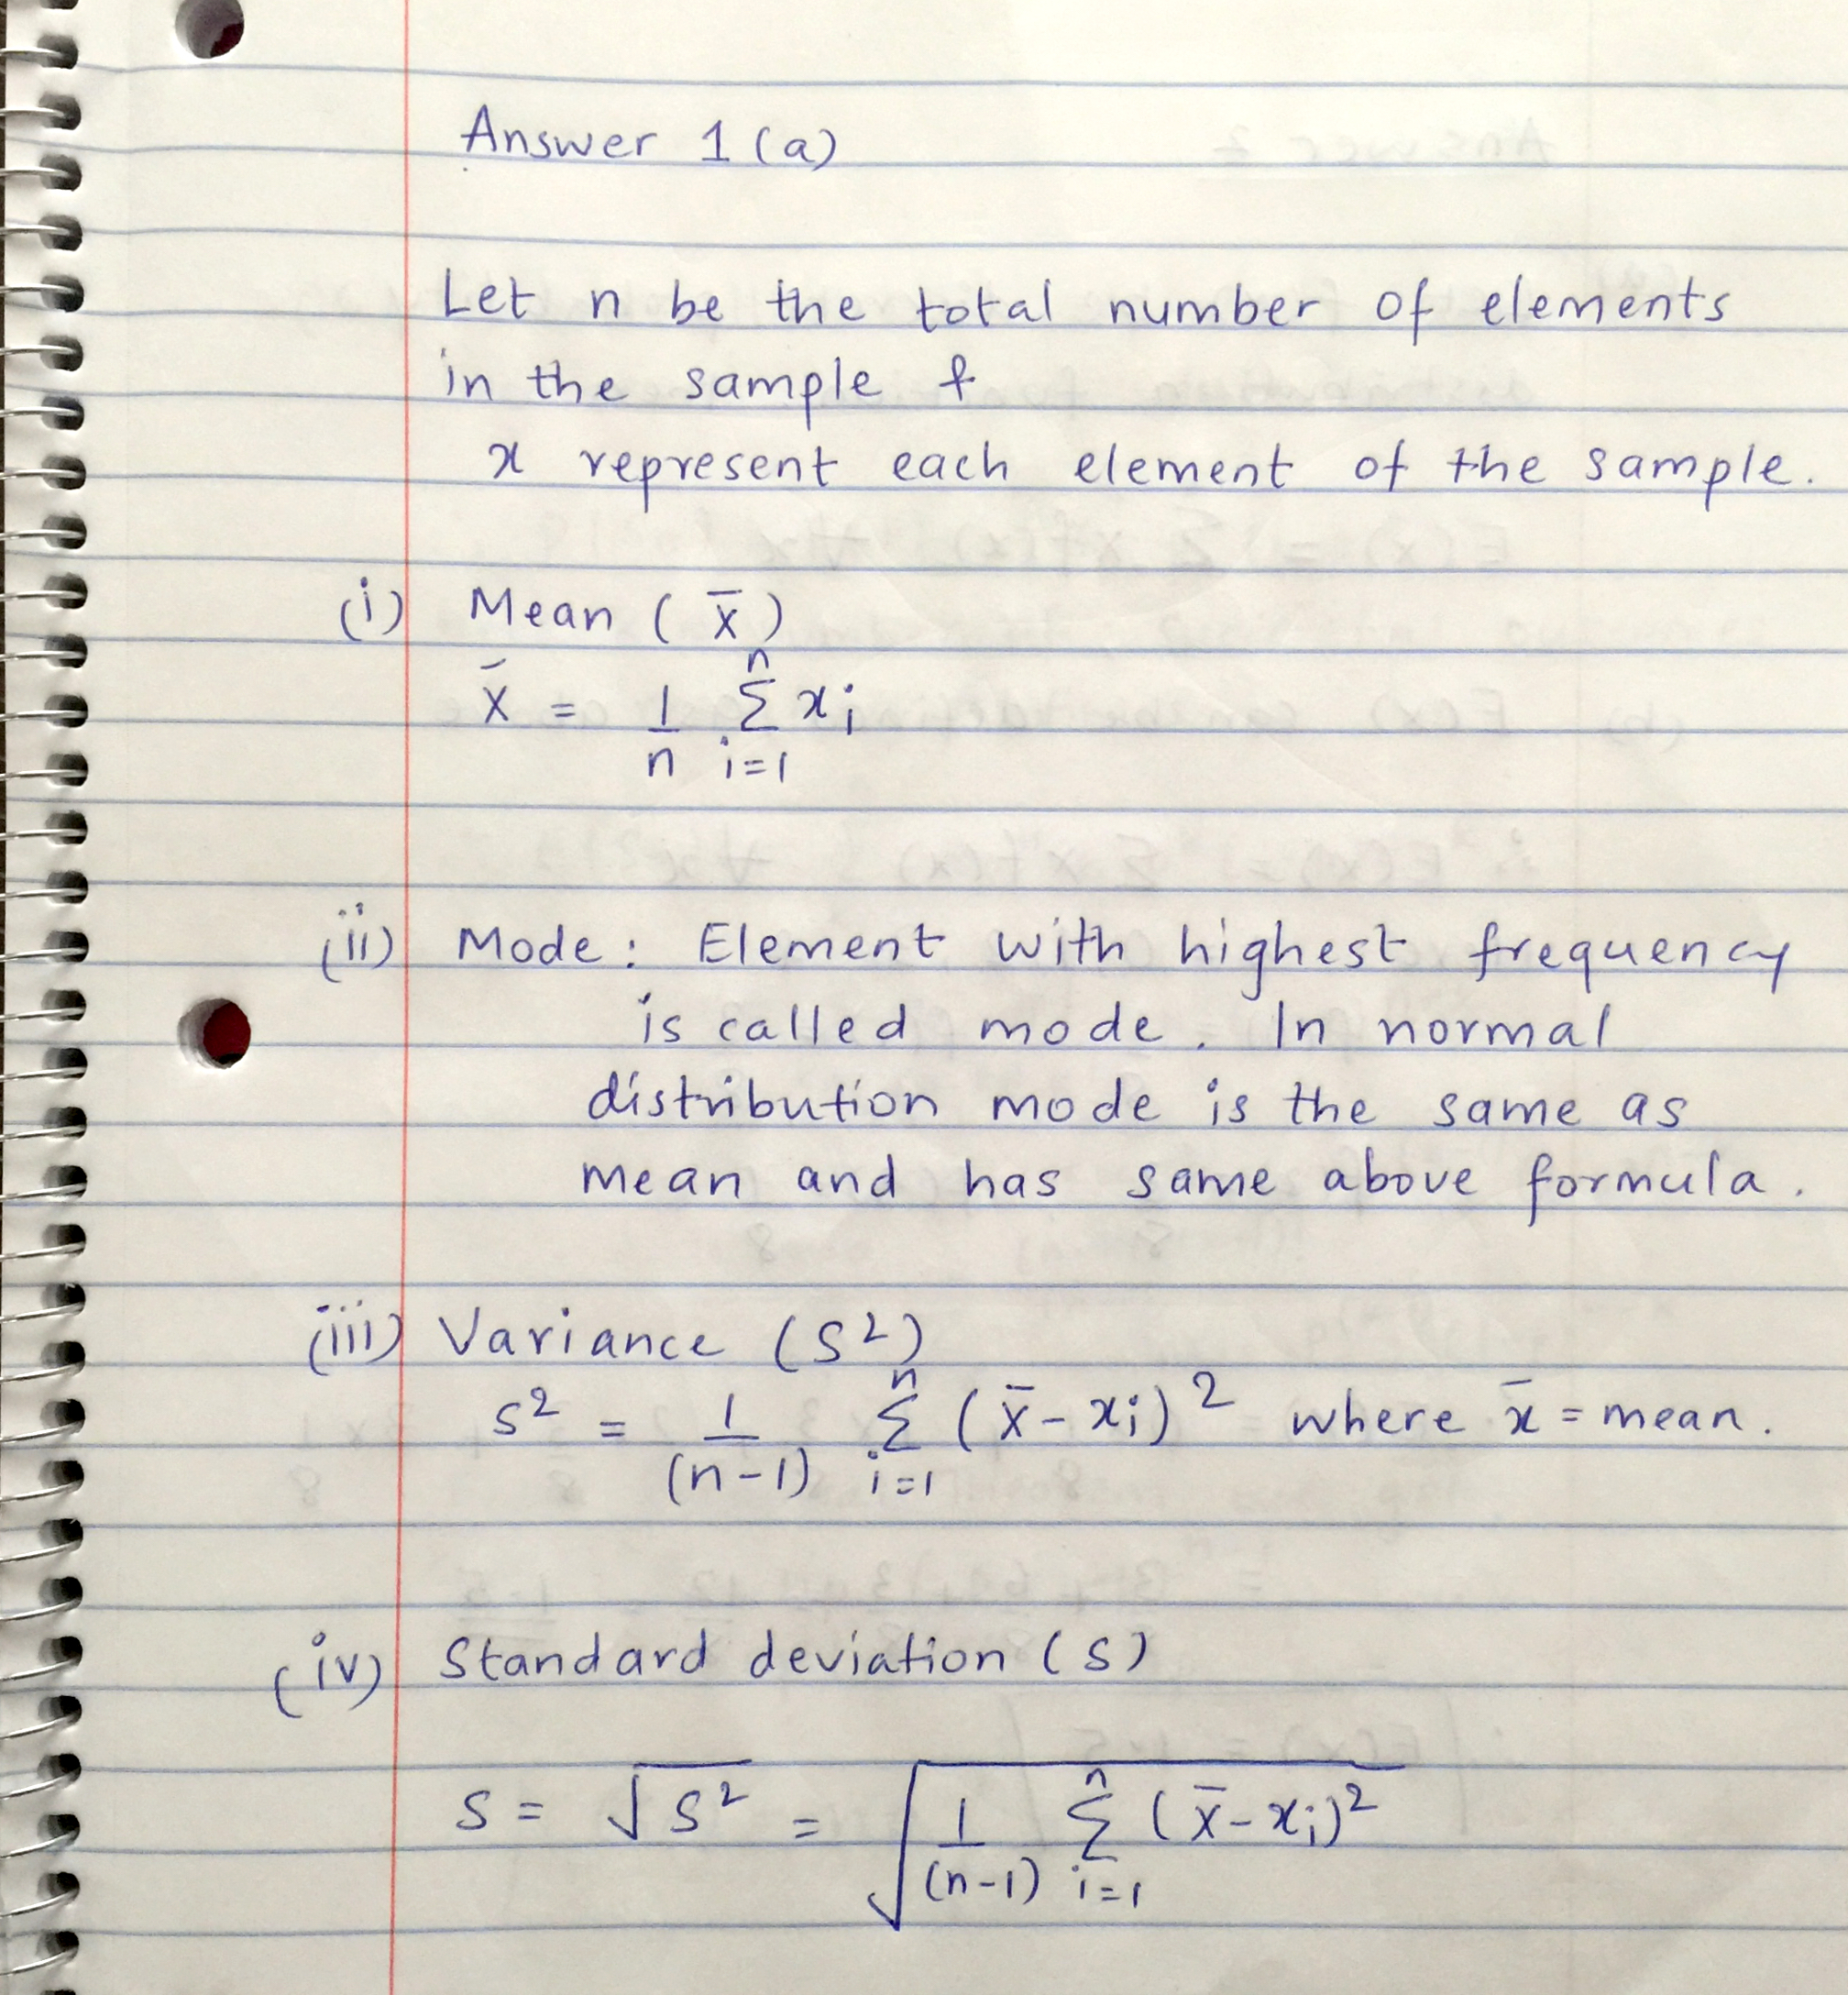 Answer 1 (a)
Let n be the total number of elements
in the sample &
x represent each element of the sample.
(i) Mean ( x̄ )
x̄ = 1/n Σ_{i=1}^{n} xi
(ii) Mode : Element with highest frequency
is called mode. In normal
distribution mode is the same as
mean and has same above formula.
(iii) Variance (S²)
s² = 1/(n-1) Σ_{i=1}^{n} (x̄ - xi)² where x̄ = mean.
(iv) Standard deviation (s)
S = √S² = √(1/(n-1) Σ_{i=1}^{n} (x̄ - xi)²)